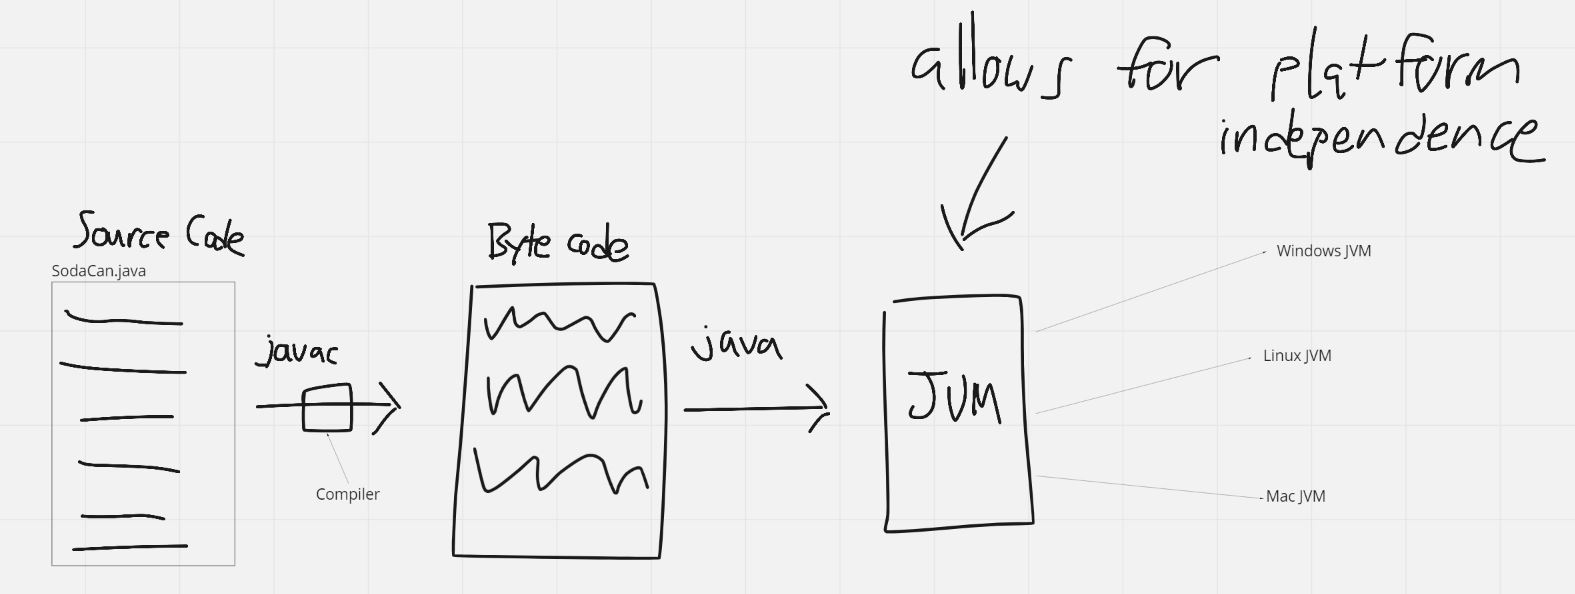 allows for platform
independence
Source Code
SodaCan.java
javac
Compiler
Byte code
java
JVM
Windows JVM
Linux JVM
Mac JVM